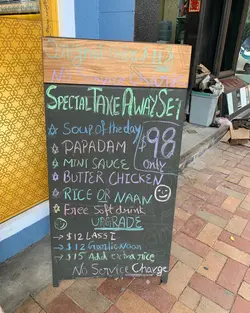 SPECIAL TAKE AWAY SET
SOUP of the day
PAPADAM
MINI SAUCE
BUTTER CHICKEN
RICE OR NAAN
Free Soft drink
$98
only
UPGRADE
→ $12 LASSI
→ $12 Garlic Naan
→ $15 Add extra rice
No Service Charge